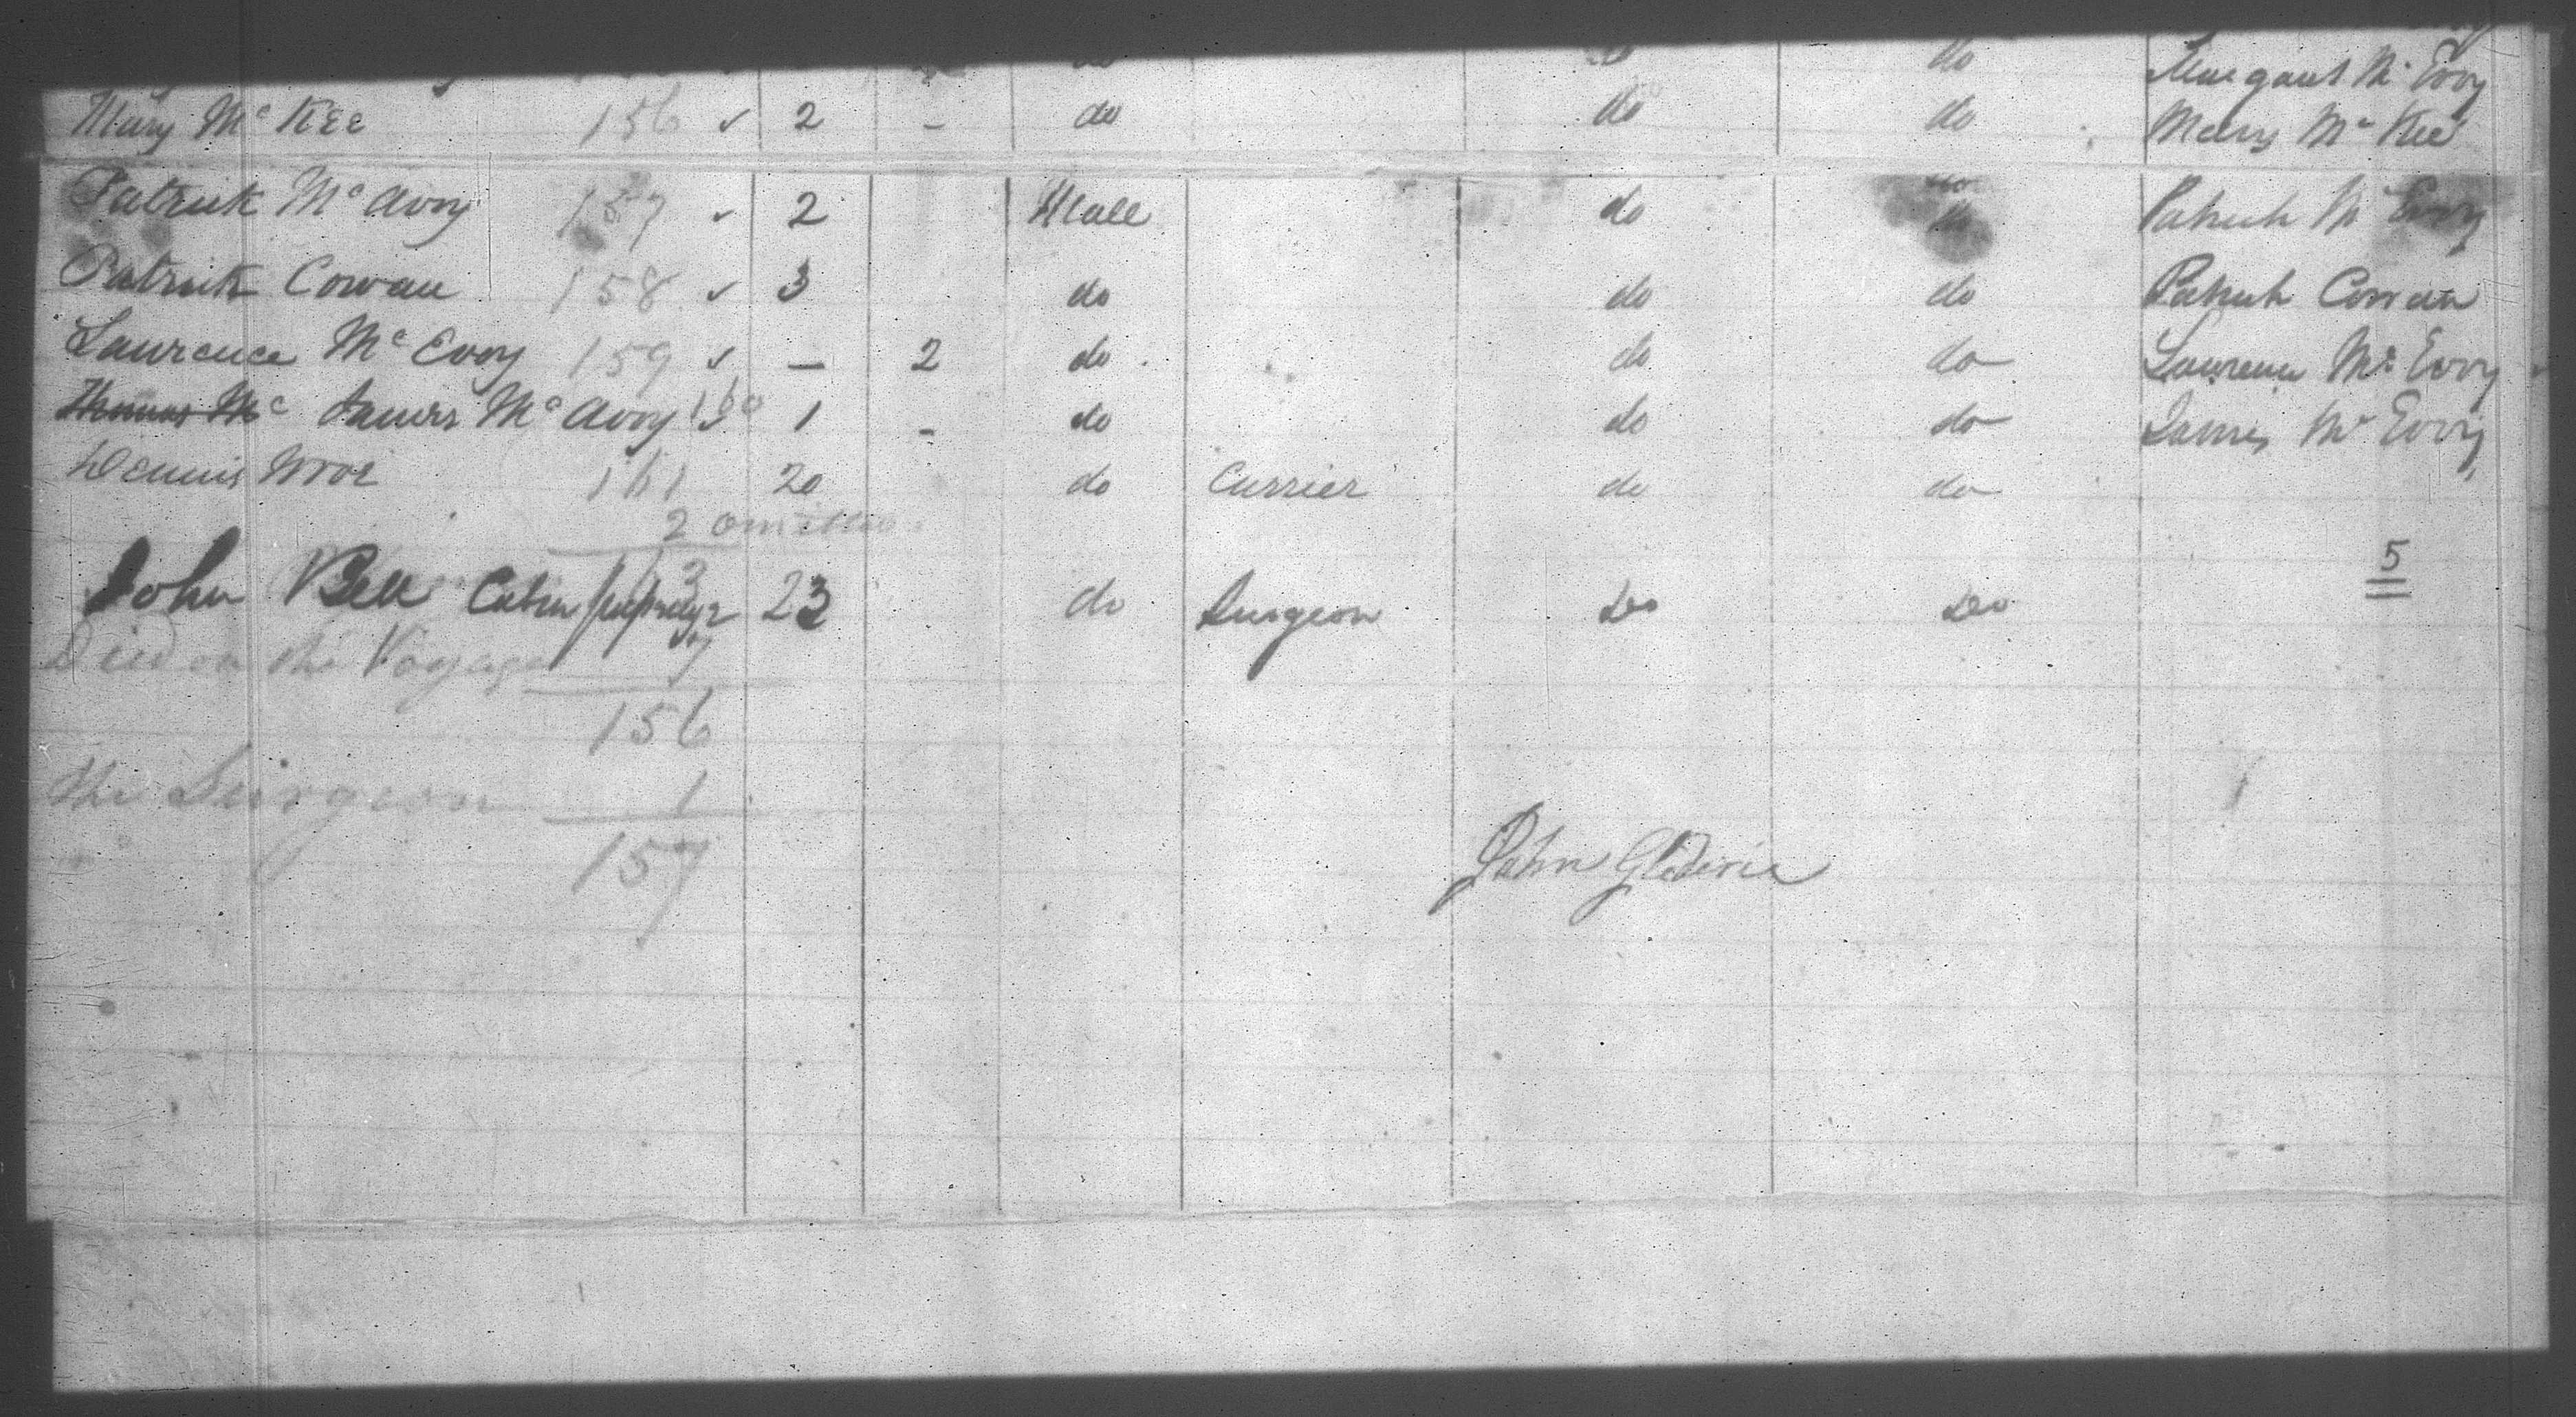 do do Margaret Mc Evoy
Mary Mc Kee 156 ✓ 2 - do do do Mary Mc Kee
Patrick Mc Avoy 157 ✓ 2 Male do do Patrick Mc Evoy
Patrick Cowan 158 ✓ 3 do do do Patrick Cowan
Laurence Mc Evoy 159 ✓ - 2 do do do Laurence Mc Evoy
Thomas Mc James Mc Avoy 160 ✓ 1 - do do do James Mc Evoy
Dennis 161 20 do Currier do do
2 omitted
5
John Bell Cabin 23 do Surgeon Do Do
Died on the Voyage 7
156
The Surgeon 1
157
John